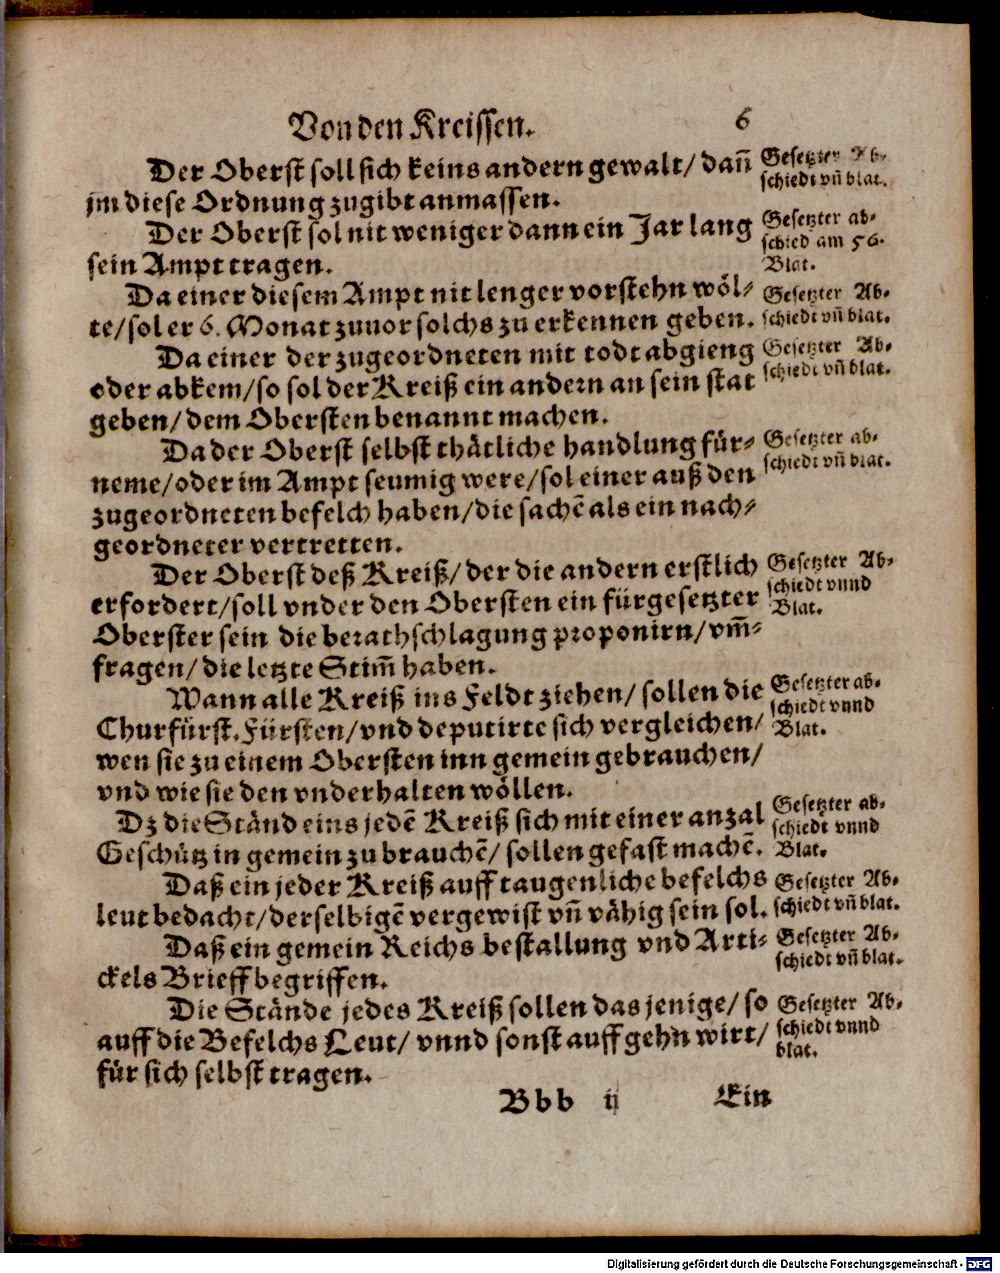 Von den Kreissen. 6
Der Oberst soll sich keins andern gewalt/ dañ
jm diese Ordnung zugibt anmassen.
Gesetzter Ab-
schiedt vñ blat.
Der Oberst sol nit weniger dann ein Jar lang
sein Ampt tragen.
Gesetzter ab-
schied am 56.
Blat.
Da einer diesem Ampt nit lenger vorstehn wöl-
te/sol er 6. Monat zuuor solchs zu erkennen geben.
Gesetzter Ab-
schiedt vñ blat.
Da einer der zugeordneten mit todt abgieng
oder abkem/so sol der Kreiß ein andern an sein stat
geben/dem Obersten benannt machen.
Gesetzter Ab-
schiedt vñ blat.
Da der Oberst selbst thätliche handlung für-
neme/oder im Ampt seumig were/sol einer auß den
zugeordneten befelch haben/die sachē als ein nach-
geordneter vertretten.
Gesetzter ab-
schiedt vñ blat.
Der Oberst deß Kreiß/der die andern erstlich
erfordert/soll vnder den Obersten ein fürgesetzter
Oberster sein die berathschlagung proponirn/vm̃-
fragen/die letzte Stim̃ haben.
Gesetzter Ab-
schiedt vnnd
Blat.
Wann alle Kreiß ins Feldt ziehen/ sollen die
Churfürst.Fürsten/vnd deputirte sich vergleichen/
wen sie zu einem Obersten inn gemein gebrauchen/
vnd wie sie den vnderhalten wöllen.
Gesetzter ab-
schiedt vnnd
Blat.
Dz die Ständ eins jedē Kreiß sich mit einer anzal
Geschütz in gemein zu brauchē/ sollen gefast machē.
Gesetzter ab-
schiedt vnnd
Blat.
Daß ein jeder Kreiß auff taugenliche befelchs
leut bedacht/derselbigē vergewist vñ vähig sein sol.
Gesetzter Ab-
schiedt vñ blat.
Daß ein gemein Reichs bestallung vnd Arti-
ckels Brieff begriffen.
Gesetzter Ab-
schiedt vñ blat.
Die Stände jedes Kreiß sollen das jenige/ so
auff die Befelchs Leut/ vnnd sonst auff gehn wirt/
für sich selbst tragen.
Gesetzter Ab-
schiedt vnnd
blat.
Bbb ij Ein
Digitalisierung gefördert durch die Deutsche Forschungsgemeinschaft - DFG